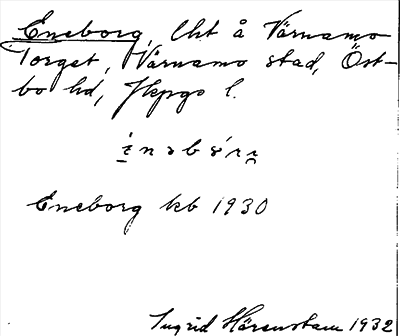 Eneborg, lht å Värnamo
Torget, Värnamo stad, Öst-
bo hd, Jkpgs l.
Eneborg kb 1930
Ingrid Härenstam 1932